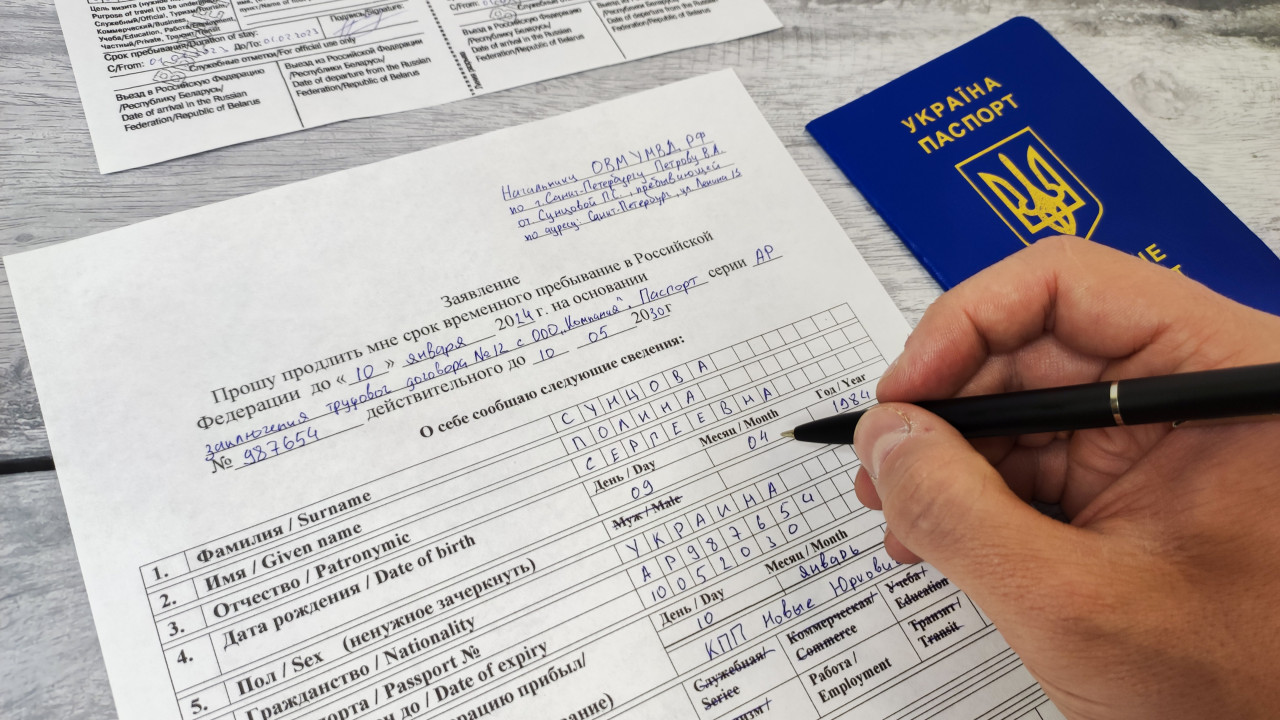 Цель визита (нужное
Purpose of travel (to be under
Служебный/Official, Туризм/Tourism
Коммерческий/Business,
Учеба/Education, Работа/Employment
Частный/Private, Транзит/Transit
Срок пребывания/Duration of stay:
С/From: До/To: 01.02.2023
Подпись/Signature:
Служебные отметки/For official use only
Въезд в Российскую Федерацию
/Республику Беларусь/
Date of arrival in the Russian
Federation/Republic of Belarus
Выезд из Российской Федерации
/Республики Беларусь/
Date of departure from the Russian
Federation/Republic of Belarus
С/From:
Въезд в Российскую Федерацию
/Республику Беларусь/
Date of arrival in the Russian
Federation/Republic of Belarus
/Республики Беларусь/
Date of departure from the Russian
Federation/Republic of Belarus
УКРАЇНА
ПАСПОРТ
Начальнику ОВМ УМВД РФ
по г.Санкт-Петербургу Петрову В.А.
от Сунцовой П.С., пребывающей
по адресу: Санкт-Петербург, ул Ленина 15
Заявление
Прошу продлить мне срок временного пребывание в Российской
Федерации до « 10 » января 2024 г. на основании
заключения трудовог договора №12 с ООО "Компания", Паспорт серии АР
№ 987654 действительного до 10 05 2030г
О себе сообщаю следующие сведения:
1. Фамилия / Surname СУНЦОВА
2. Имя / Given name ПОЛИНА
3. Отчество / Patronymic СЕРГЕЕВНА
4. Дата рождения / Date of birth День / Day Месяц / Month Год / Year
09 04 1984
5. Пол / Sex (ненужное зачеркнуть) Муж / Male
Гражданство / Nationality УКРАИНА
порта / Passport № АР987654
н до / Date of expiry 10052030
ерацию прибыл/ День / Day Месяц / Month
10 январь
КПП Новые Юркови
вание) Служебная/ Коммерческая/ Учеба/
Serice Commerce Education
изм/ Работа/ Транзит/
Employment Transit